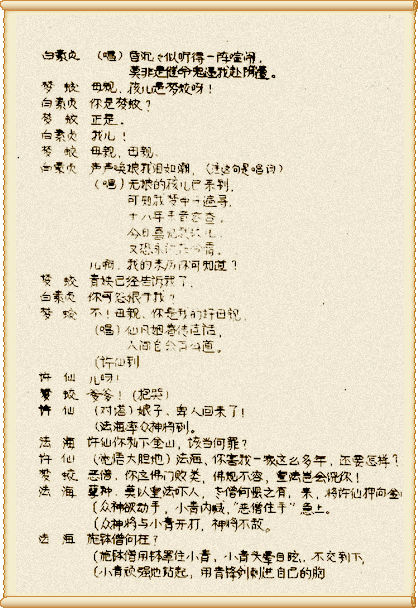 白素贞 （唱）昏沉之似听得一阵喧闹，
莫非是催命鬼逼我赴阴曹。
梦 蛟 母亲，孩儿是梦蛟呀！
白素贞 你是梦蛟？
梦 蛟 正是。
白素贞 我儿！
梦 蛟 母亲，母亲。
白素贞 声声唤娘我泪如潮，（注这句是唱词）
（唱）无娘的孩儿已来到，
可知我梦中千遍寻，
十八年
今日
又恐
儿啊，我的来历你可知道？
梦 蛟 青姨已经告诉我了，
白素贞 你可怨恨于我？
梦 蛟 不！母亲，你是我的好母亲，
（唱）仙凡姻着传佳话，
人间自公道。
（许仙到
许 仙 儿呀！
梦 蛟 爹爹！（抱哭）
许 仙 （对塔）娘子，卑人回来了！
（法海率众神将到。
法 海 许仙你私下金山，该当何罪？
许 仙 （施语大胆地）法海，你害我一家这么多年，还要怎样？
梦 蛟 恶僧，你这佛门败类，佛规不容，皇法岂会饶你！
法 海 孽种，莫以皇法吓人，老僧何惧之有，来，将许仙押向金
（众神欲动手，小青内喊，“恶僧住手”急上。
（众神将与小青开打，神将不敌。
法 海 施钵僧何在？
（施钵僧用钵罩住小青，小青头晕目眩，不交到下，
（小青顽强地站起，用青锋剑刺进自己的胸